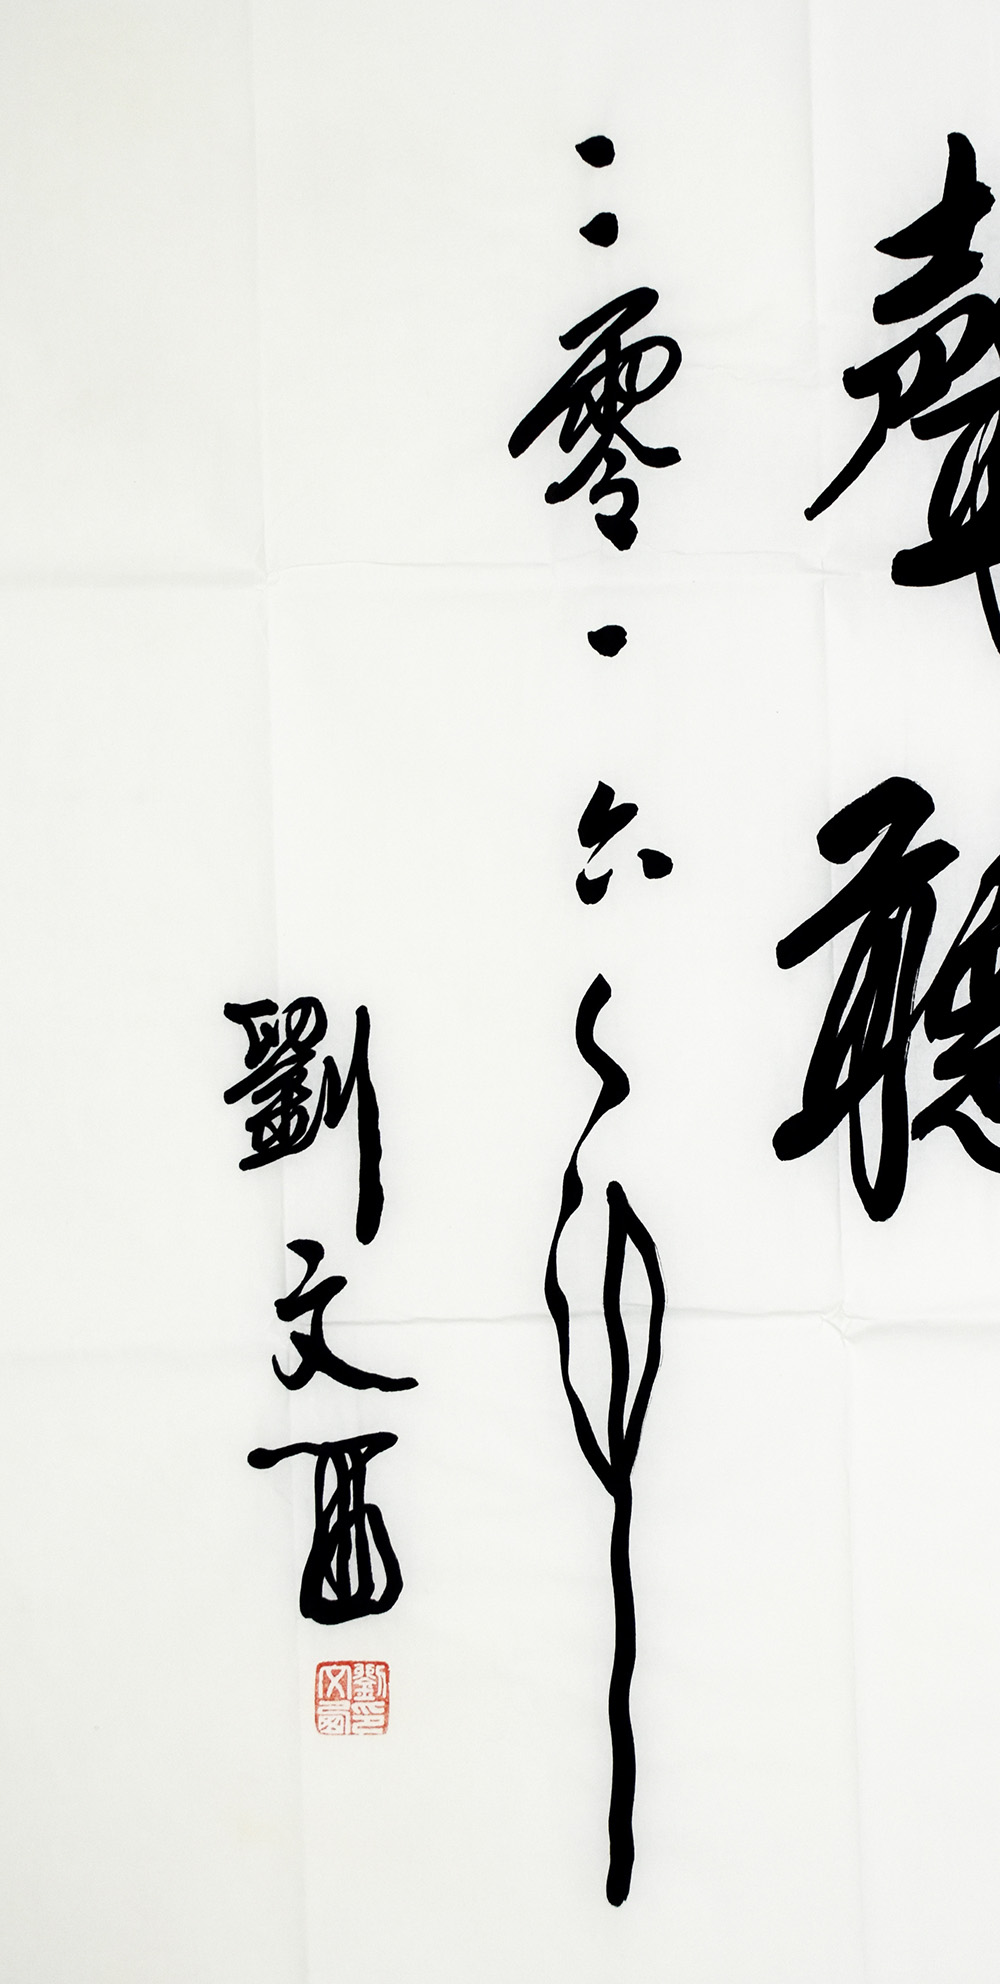 聲聽
二零一六年
劉文西
劉印
文西